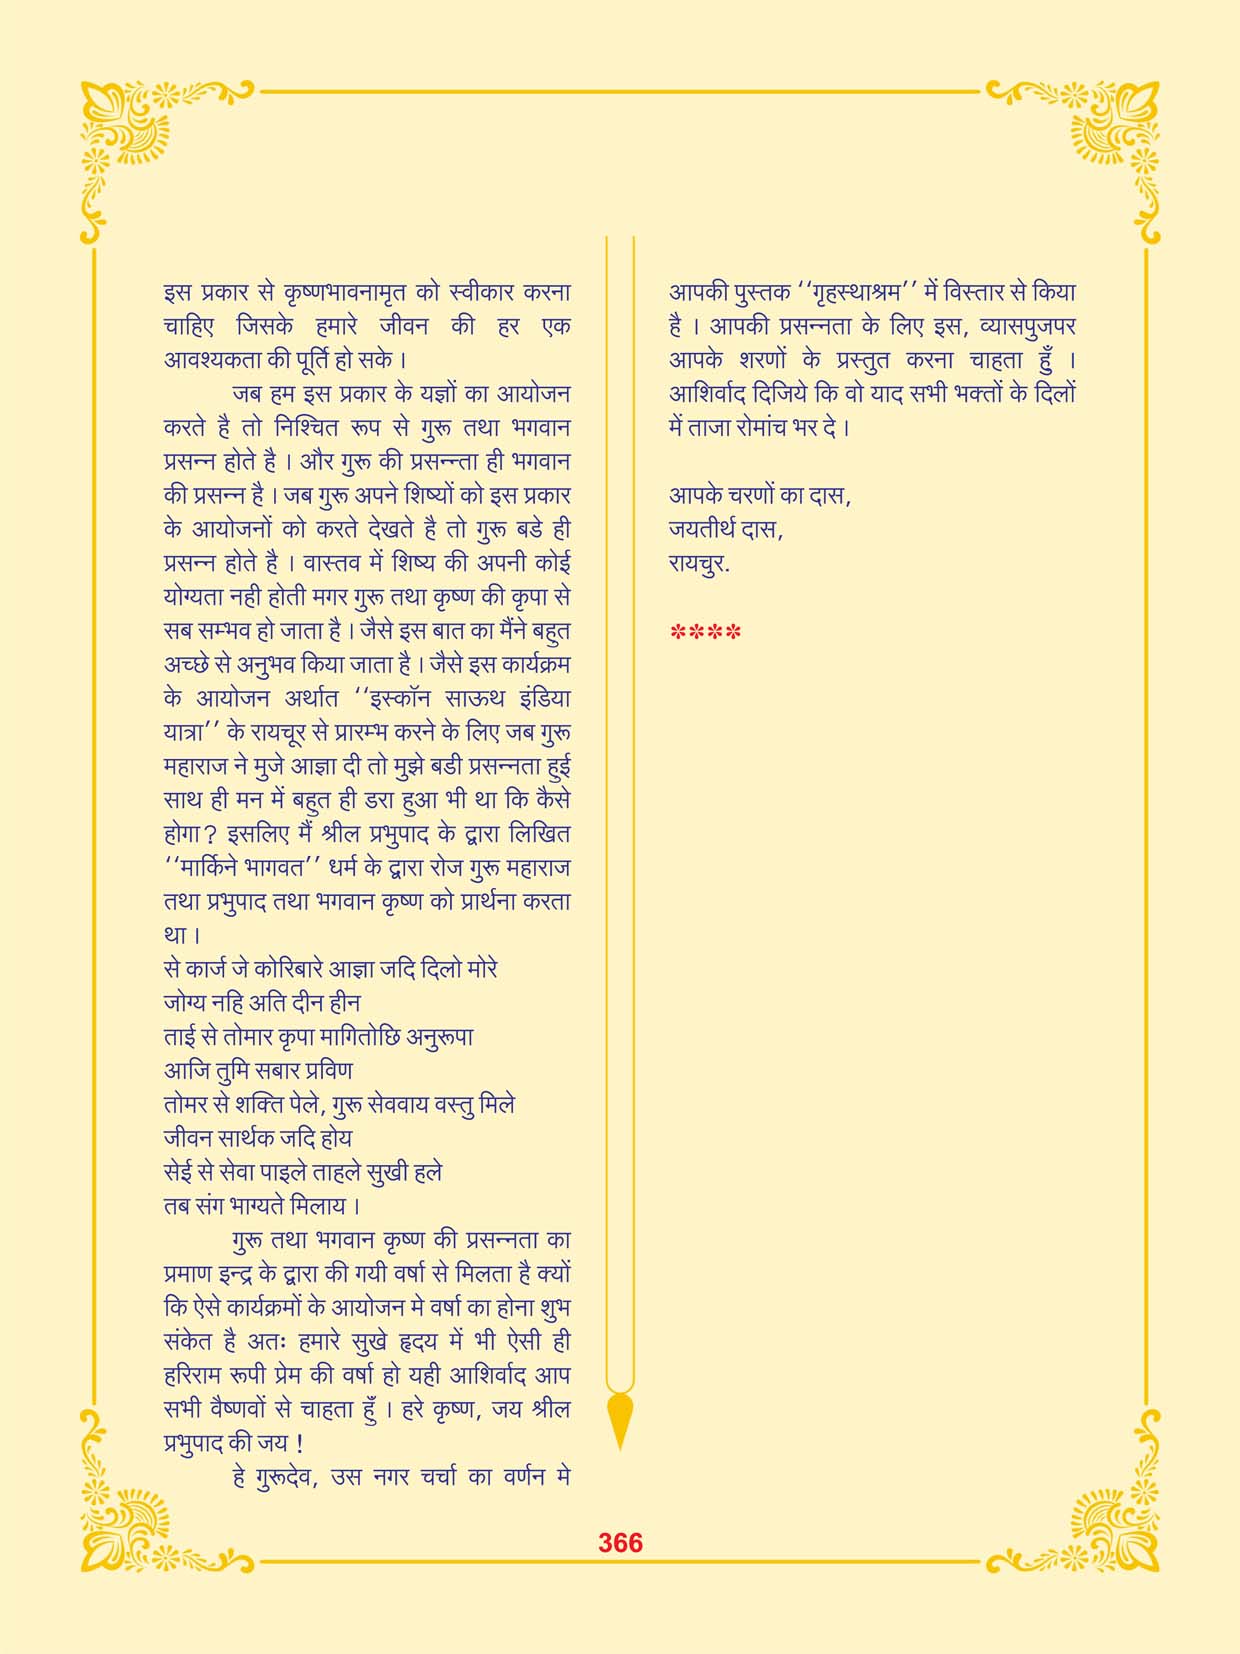 इस प्रकार से कृष्णभावनामृत को स्वीकार करना
चाहिए जिसके हमारे जीवन की हर एक
आवश्यकता की पूर्ति हो सके ।
जब हम इस प्रकार के यज्ञों का आयोजन
करते है तो निश्चित रूप से गुरू तथा भगवान
प्रसन्न होते है । और गुरू की प्रसन्न्ता ही भगवान
की प्रसन्न है । जब गुरू अपने शिष्यों को इस प्रकार
के आयोजनों को करते देखते है तो गुरू बडे ही
प्रसन्न होते है । वास्तव में शिष्य की अपनी कोई
योग्यता नही होती मगर गुरू तथा कृष्ण की कृपा से
सब सम्भव हो जाता है । जैसे इस बात का मैंने बहुत
अच्छे से अनुभव किया जाता है । जैसे इस कार्यक्रम
के आयोजन अर्थात ‘‘इस्कॉन साऊथ इंडिया
यात्रा’’ के रायचूर से प्रारम्भ करने के लिए जब गुरू
महाराज ने मुजे आज्ञा दी तो मुझे बडी प्रसन्नता हुई
साथ ही मन में बहुत ही डरा हुआ भी था कि कैसे
होगा? इसलिए मैं श्रील प्रभुपाद के द्वारा लिखित
‘‘मार्किने भागवत’’ धर्म के द्वारा रोज गुरू महाराज
तथा प्रभुपाद तथा भगवान कृष्ण को प्रार्थना करता
था ।
से कार्ज जे कोरिबारे आज्ञा जदि दिलो मोरे
जोग्य नहि अति दीन हीन
ताई से तोमार कृपा मागितोछि अनुरूपा
आजि तुमि सबार प्रविण
तोमर से शक्ति पेले, गुरू सेववाय वस्तु मिले
जीवन सार्थक जदि होय
सेई से सेवा पाइले ताहले सुखी हले
तब संग भाग्यते मिलाय ।
गुरू तथा भगवान कृष्ण की प्रसन्नता का
प्रमाण इन्द्र के द्वारा की गयी वर्षा से मिलता है क्यों
कि ऐसे कार्यक्रमों के आयोजन मे वर्षा का होना शुभ
संकेत है अतः हमारे सुखे हृदय में भी ऐसी ही
हरिराम रूपी प्रेम की वर्षा हो यही आशिर्वाद आप
सभी वैष्णवों से चाहता हुँ । हरे कृष्ण, जय श्रील
प्रभुपाद की जय !
हे गुरूदेव, उस नगर चर्चा का वर्णन मे
आपकी पुस्तक ‘‘गृहस्थाश्रम’’ में विस्तार से किया
है । आपकी प्रसन्नता के लिए इस, व्यासपुजपर
आपके शरणों के प्रस्तुत करना चाहता हुँ ।
आशिर्वाद दिजिये कि वो याद सभी भक्तों के दिलों
में ताजा रोमांच भर दे ।
आपके चरणों का दास,
जयतीर्थ दास,
रायचुर.
****
366